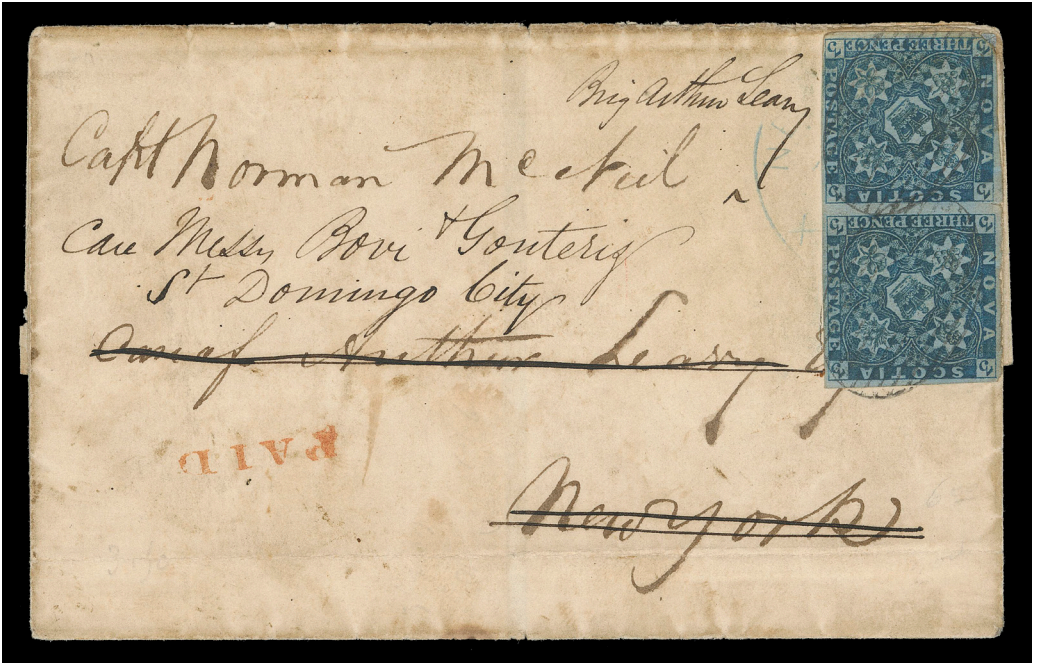 Brig Arthur Leary
Capt Norman McNeil
Care Messrs Bovi & Gonterig
St Domingo City
Care of Arthur Leary
New York
PAID
THREE PENCE
NOVA
POSTAGE
SCOTIA
THREE PENCE
NOVA
POSTAGE
SCOTIA